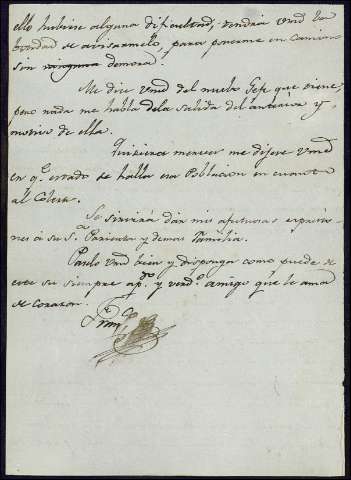 ello hubiere alguna dificultad, tendrá Vmd la
bondad de avisarmelo, para ponerme en Camino
sin ninguna demora.
Me dice Vmd del nuebo Gefe qe viene,
pero nada me habla dela salida del anterior y
motivo de ella.
Quisiera merecer me dijese Vmd
en qe estado se halla esa Poblacion en cuanto
al Colera.
Se servirá dár mis afectuosas
nes á su Sa Parienta y demas Familia.
Vmd bien y disponga como puede de
este su siempre apdo y verdo amigo qe le ama
de corazon.